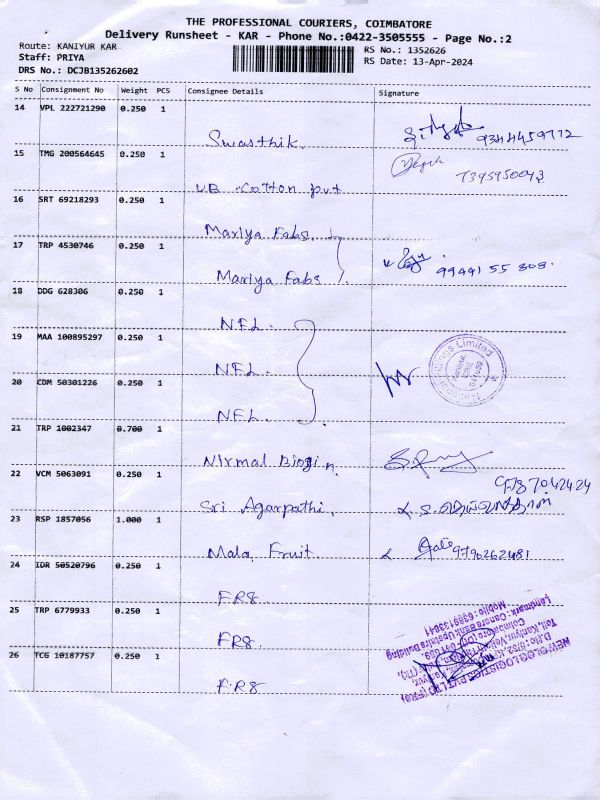 THE PROFESSIONAL COURIERS, COIMBATORE
Delivery Runsheet - KAR - Phone No.:0422-3505555 - Page No.:2
Route: KANIYUR KAR
RS No.: 1352626
Staff: PRIYA
RS Date: 13-Apr-2024
DRS No.: DCJB135262602
S No Consignment No Weight PCS Consignee Details Signature
14 VPL 222721290 0.250 1
Swasthik. 9344459772
15 TMG 200564645 0.250 1
V.B Cotton pvt 7395950043
16 SRT 69218293 0.250 1
Mariya Fabs.
17 TRP 4530746 0.250 1
Mariya Fabs 99441 55 808.
18 DDG 628306 0.250 1
NFL.
19 MAA 100895297 0.250 1
NFL.
20 CDM 50301226 0.250 1
NFL.
21 TRP 1002347 0.700 1
Nirmal
22 VCM 5063091 0.250 1
Sri Agarpathi.
23 RSP 1857056 1.000 1
Mala Fruit 9796262481
24 IDR 50520796 0.250 1
FR8
25 TRP 6779933 0.250 1
FR8.
26 TCG 10187757 0.250 1
FR8
Landmark: Canara Bank Upstairs Building
Mobile: 6369133041